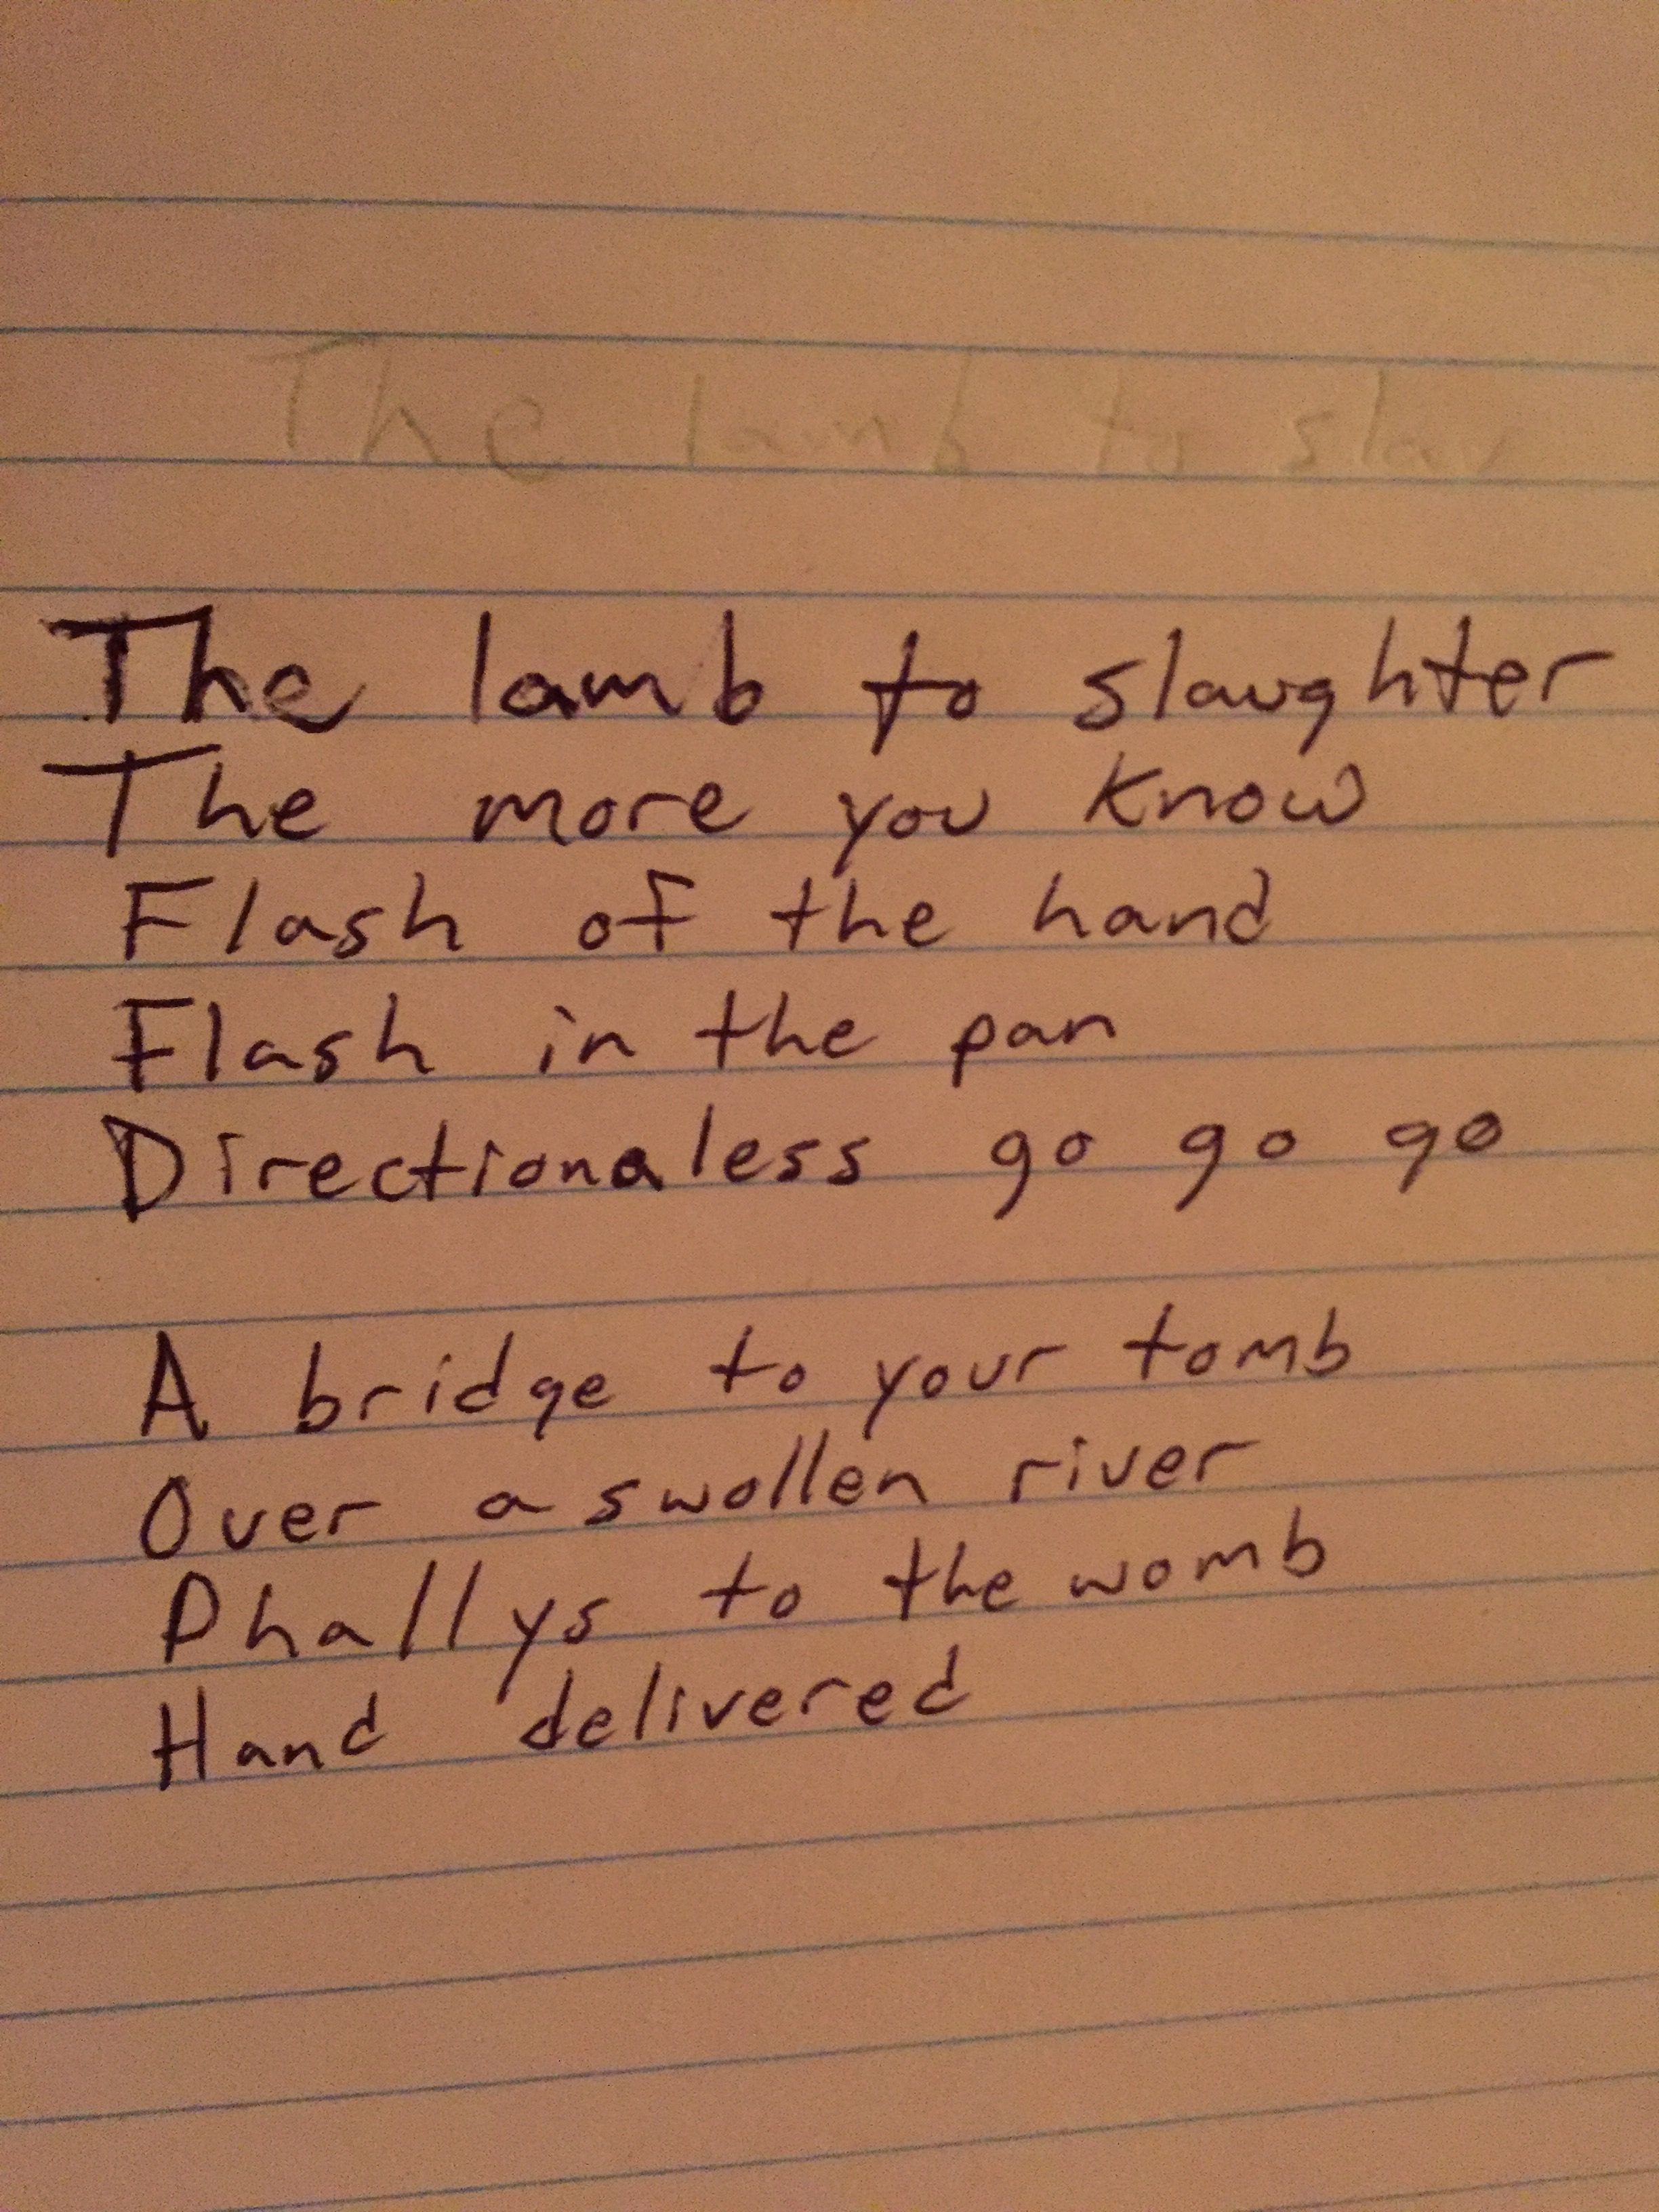 The lamb to slau
The lamb to slaughter
The more you know
Flash of the hand
Flash in the pan
Directionaless go go go
A bridge to your tomb
Over a swollen river
Phallys to the womb
Hand delivered